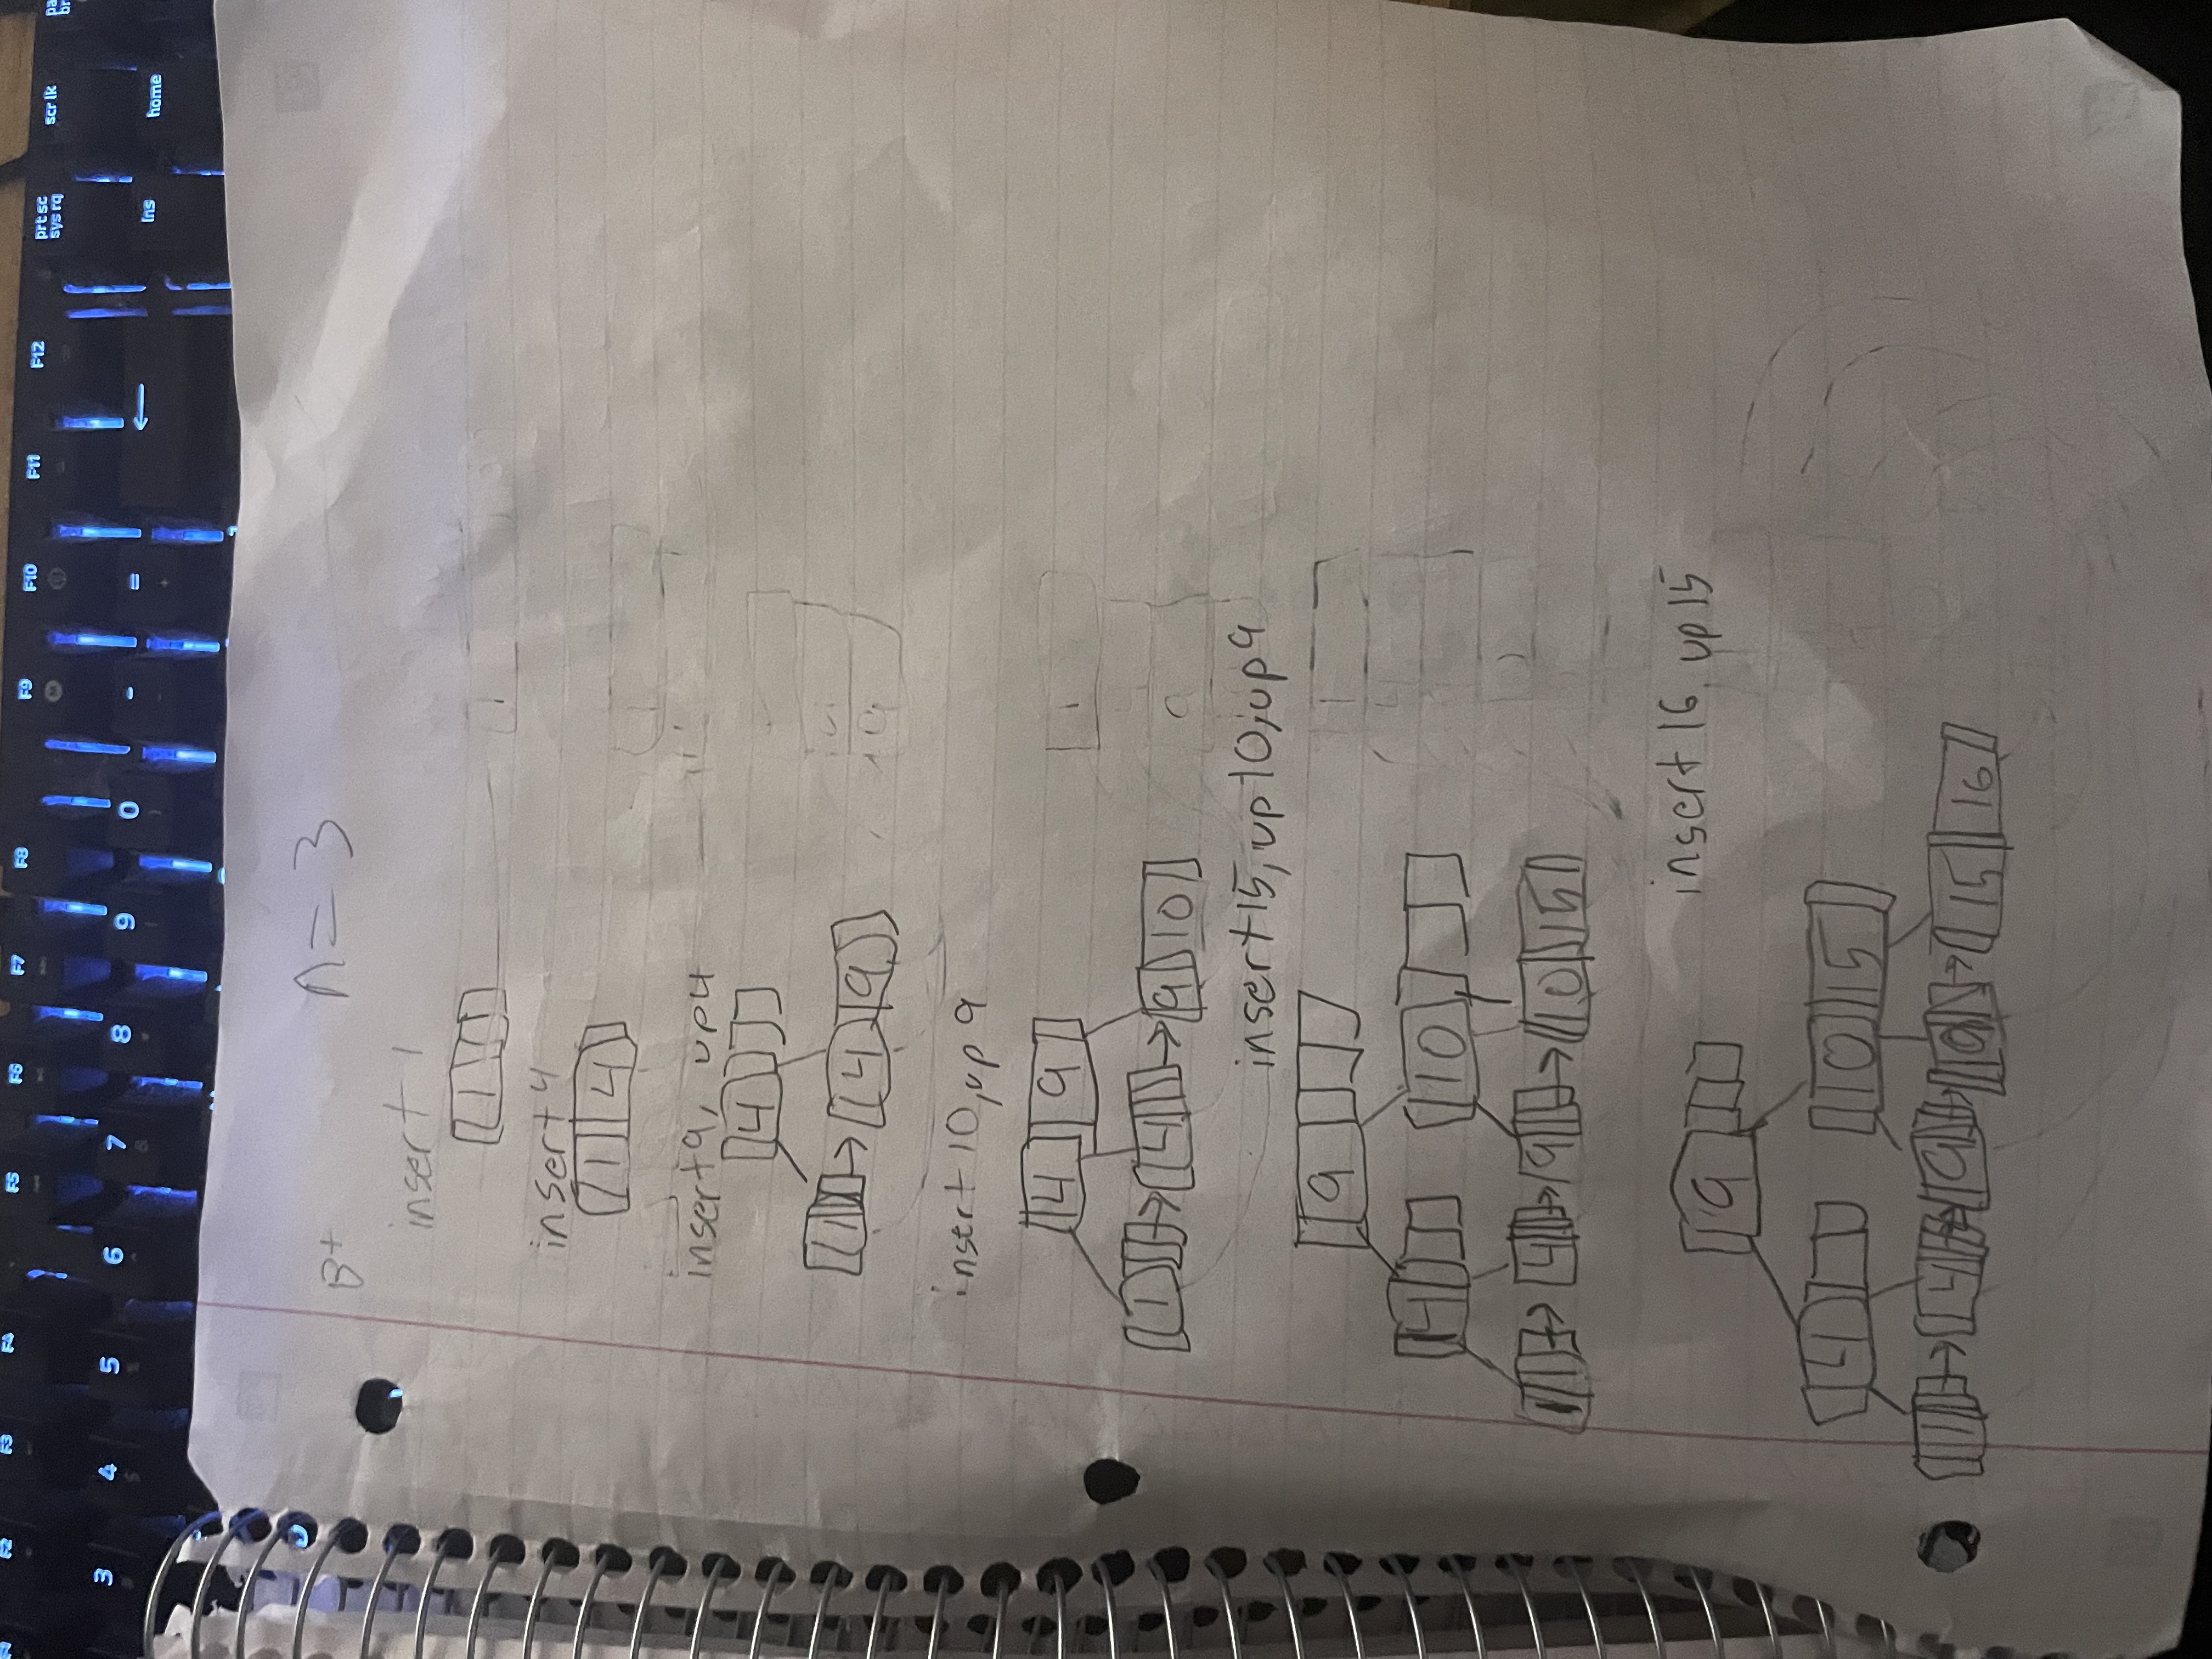 F2 F3 F4 F5 F6 F7 F8 F9 F10 F11 F12 prt sc sys rq scr lk
3 4 5 6 7 8 9 0 - = ← Ins home
B+ n = 3
insert 1
1
insert 4
1 4
insert 9, up 4
4
1 → 4 9
insert 10, up 9
4 9
1 → 4 → 9 10
insert 15, up 10, up 9
9
4 10
1 → 4 → 9 → 10 15
insert 16, up 15
9
4 10 15
1 → 4 → 9 → 10 → 15 16